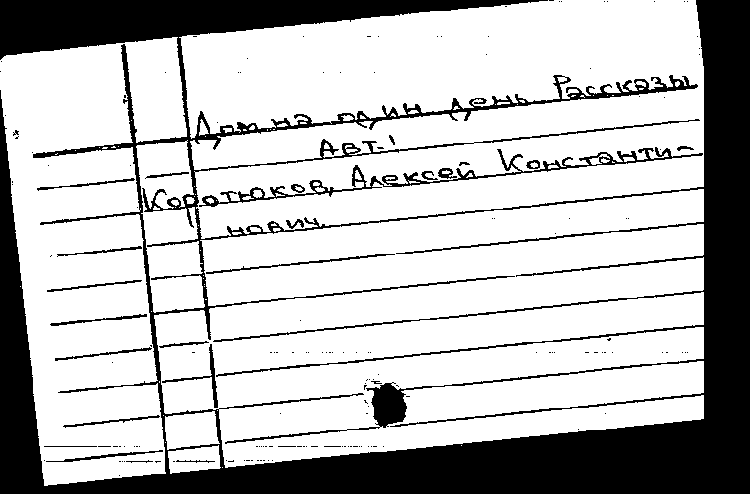 Дом на один день Рассказы
Авт.:
Коротюков, Алексей Константи-
нович.